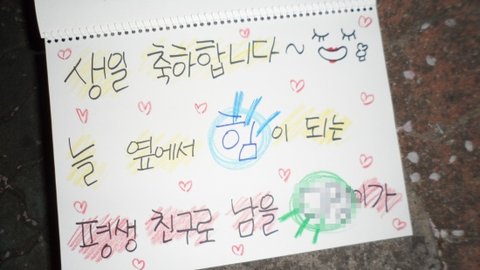 생일 축하합니다~
늘 옆에서 힘이 되는
평생 친구로 남을 이가